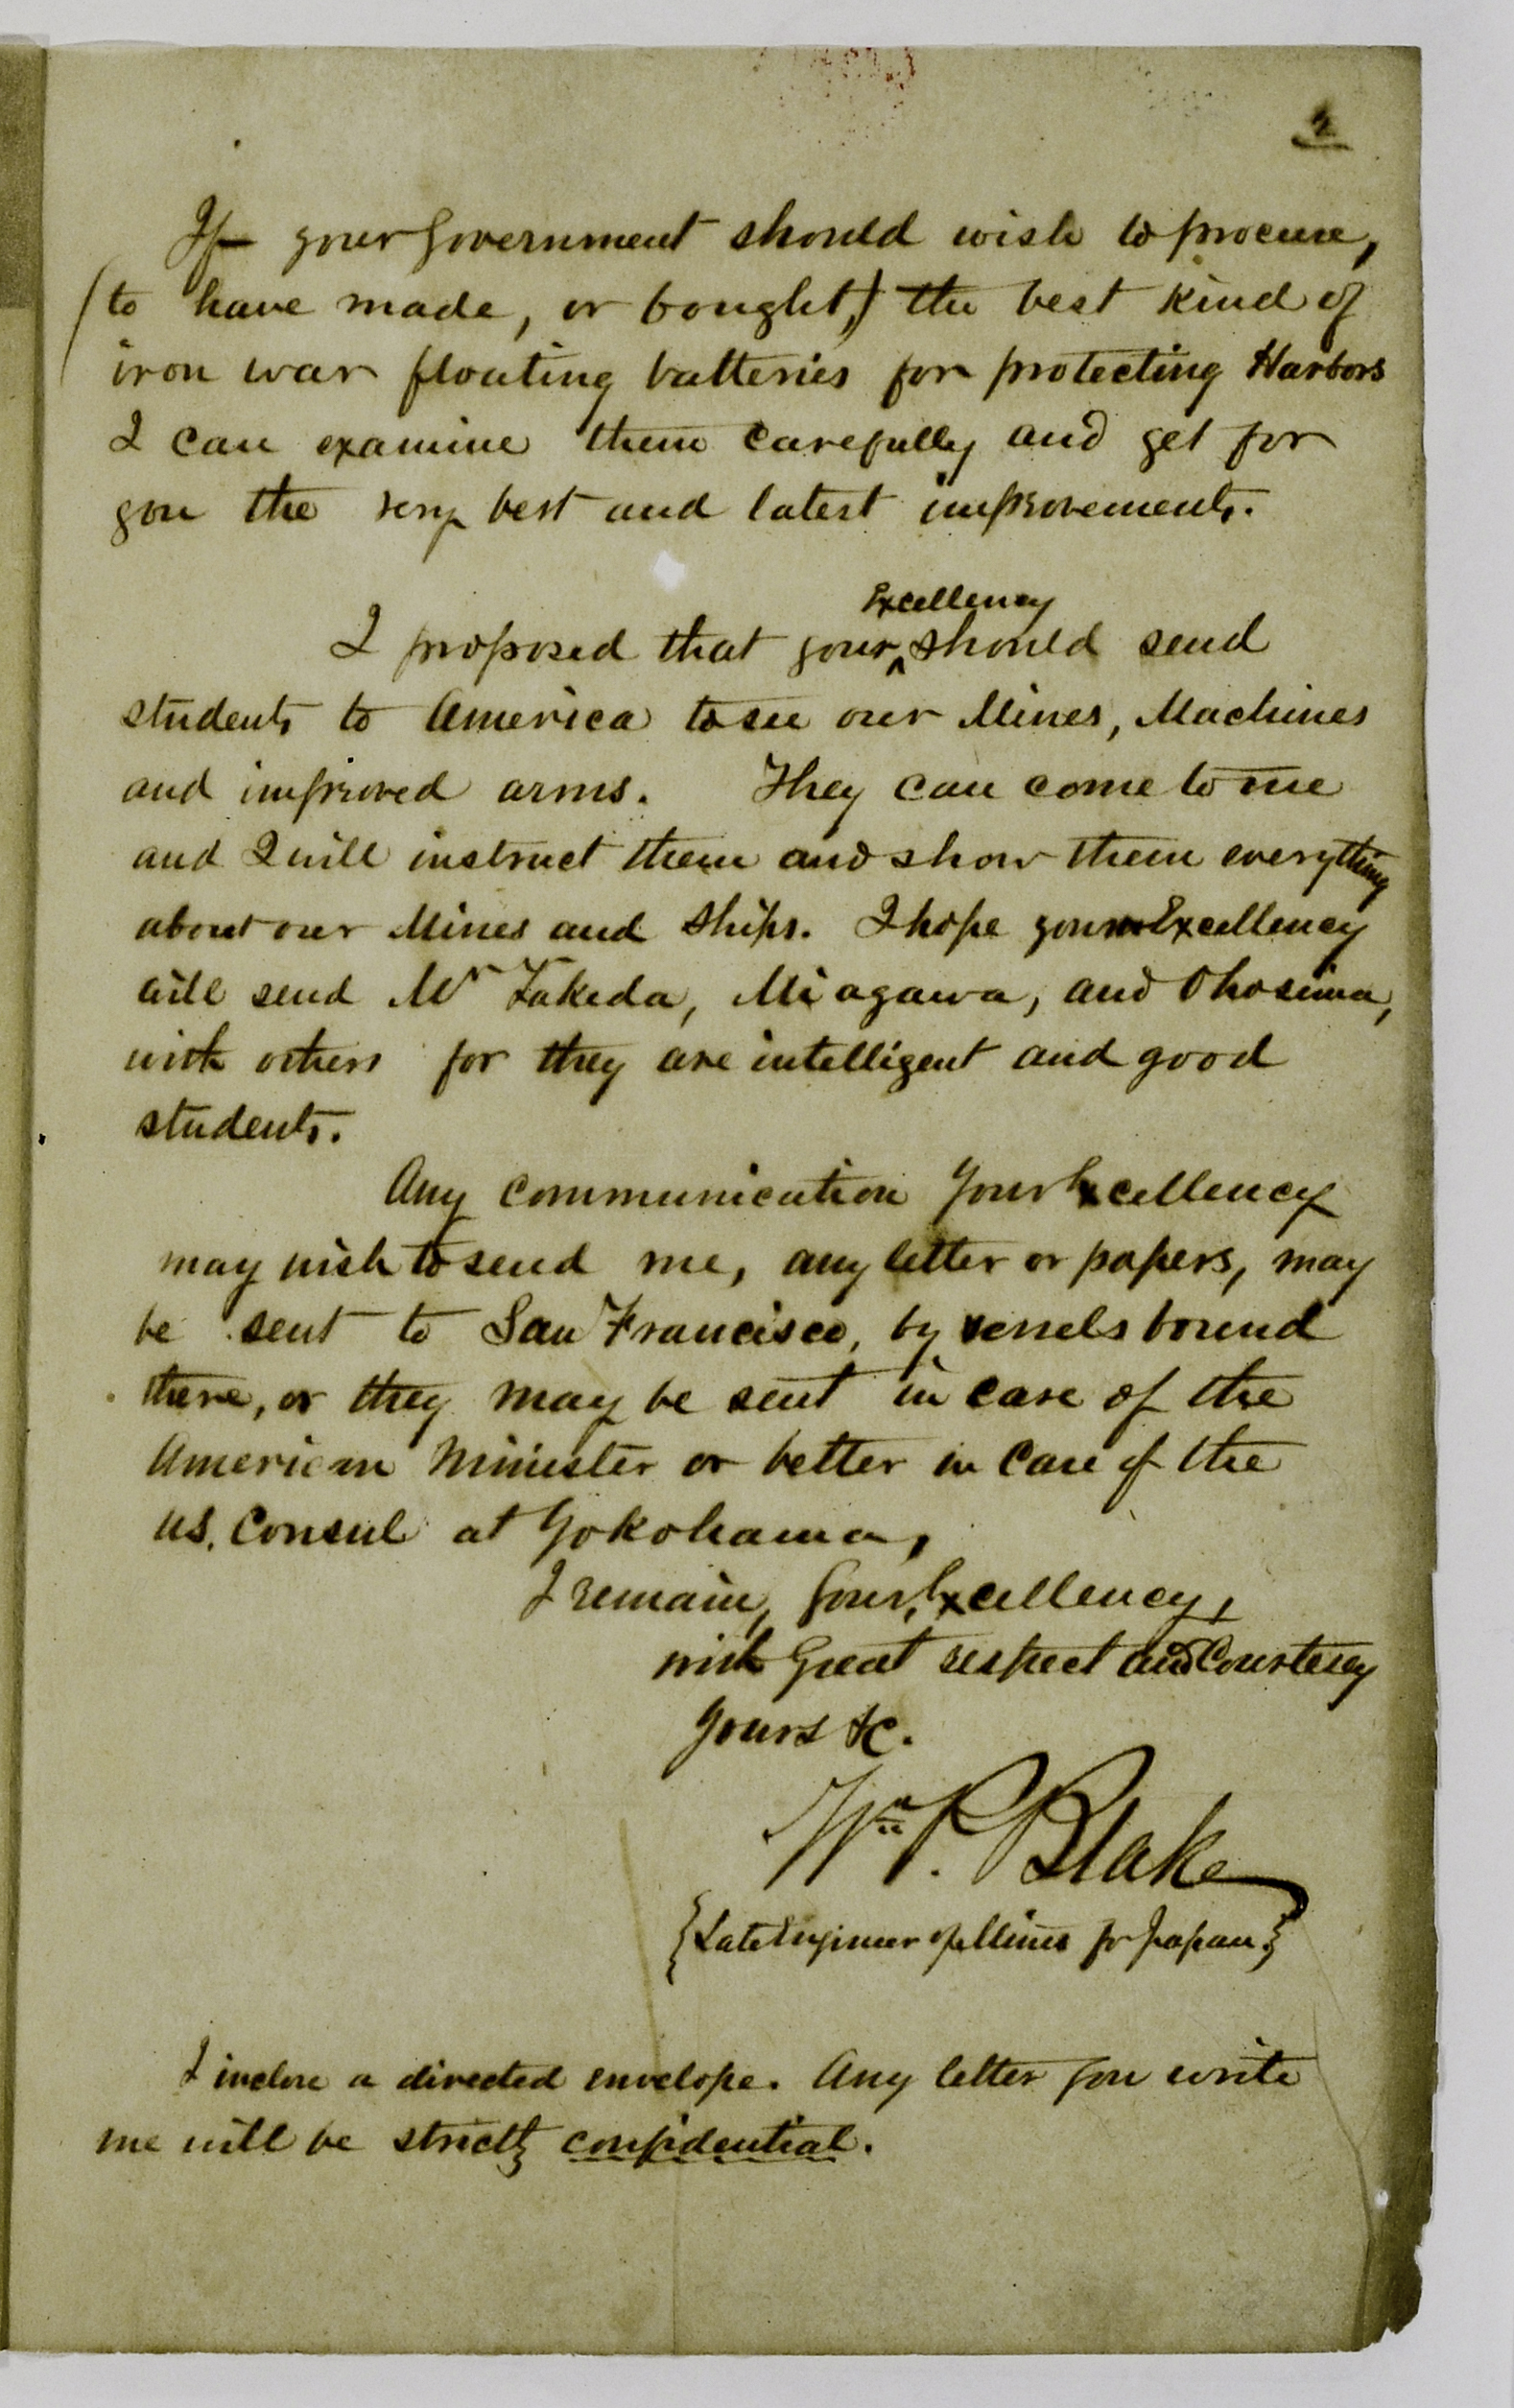 2
If your Government should wish to procure,
(to have made, or bought,) the best kind of
iron war floating batteries for protecting Harbors
I can examine them carefully and get for
you the very best and latest improvements.
Excellency
I proposed that your ^ should send
students to America to see our Mines, Machines
and improved arms. They can come to me
and I will instruct them and show them everything
about our Mines and Ships. I hope your Excellency
will send Mr Takeda, Miagawa, and Ohosima,
with others for they are intelligent and good
students.
Any communication Your Excellency
may wish to send me, any letter or papers, may
be sent to San Francisco, by vessels bound
there, or they may be sent in care of the
American Minister or better in Care of the
U.S. Consul at Yokohama,
I remain, Your Excellency,
with Great respect and Courtesey
Yours &c.
Wm P. Blake
{Late Engineer of Mines for Japan.}
I inclose a directed envelope. Any letter you write
me will be strictly confidential.